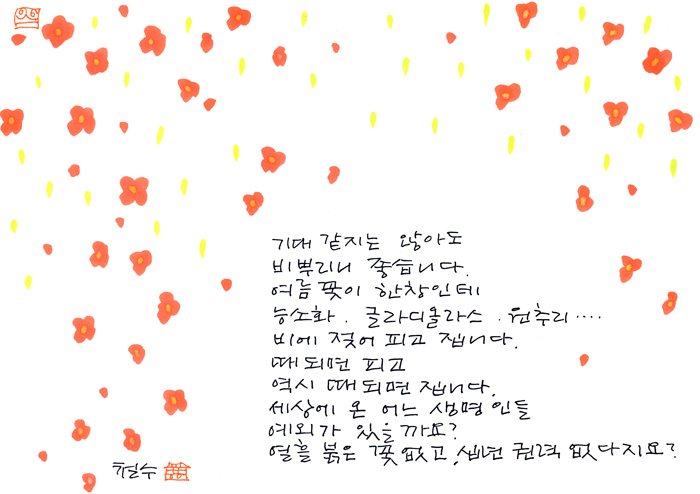 기대 같지는 않아도
비뿌리니 좋습니다.
여름 꽃이 한창인데
능소화. 글라디올라스. 원추리....
비에 젖어 피고 집니다.
때되면 피고
역시 때되면 집니다.
세상에 온 어느 생명인들
예외가 있을까요?
열흘 붉은 꽃 없고, 십년 권력 없다지요?
철수